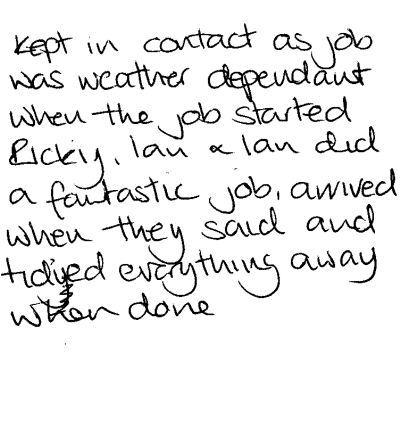 kept in contact as job
was weather dependant
when the job started
Ricky, Ian & Ian did
a fantastic job, arrived
when they said and
tidyed everything away
when done